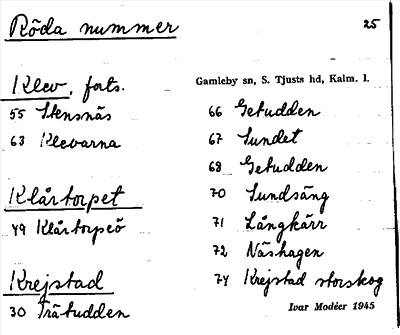 Röda nummer 25
Klev, forts.
Gamleby sn, S. Tjusts hd, Kalm. l.
55 Stensnäs
63 Klevarna
Klårtorpet
49 Klårtorpeö
Krejstad
30 Trätudden
66 Getudden
67 Sundet
68 Getudden
70 Sundsäng
71 Långkärr
72 Näshagen
74 Krejstad storskog
Ivar Modéer 1945